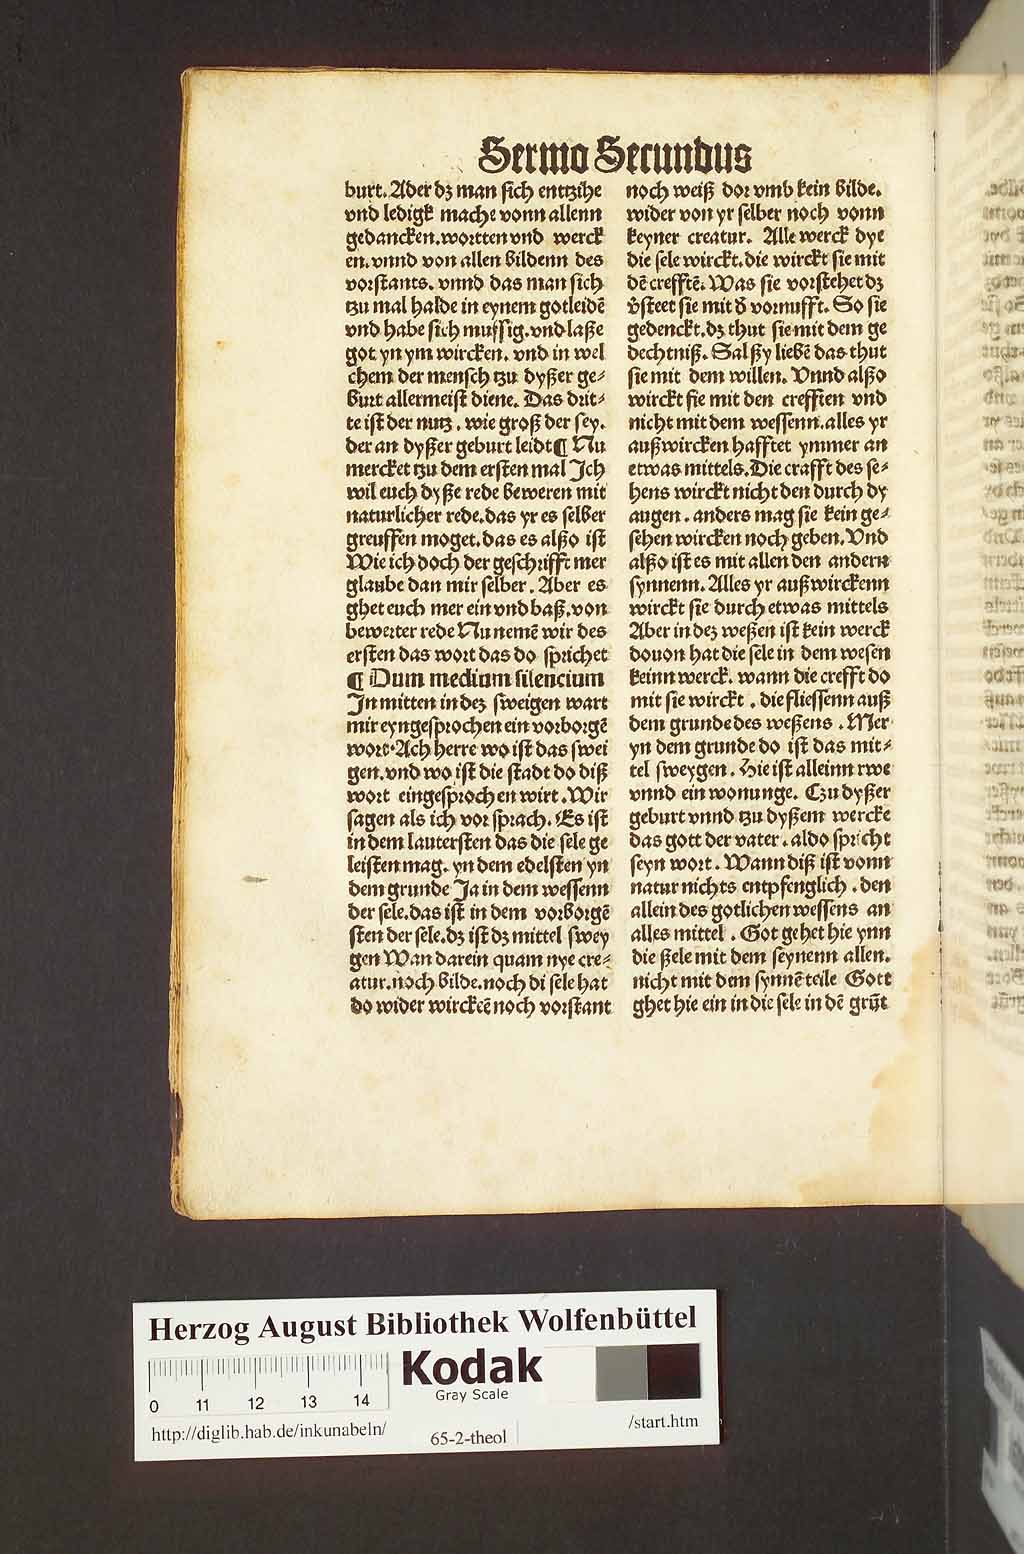 Sermo Secundus
burt. Ader dz man sich entzihe
vnd ledigk mache vonn allenn
gedancken. wortten vnd werck
en. vnnd von allen bildenn des
vorstants. vnnd das man sich
tzu mal halde in eynem gotleidē
vnd habe sich mussig. vnd laße
got yn ym wircken. vnd in wel
chem der mensch tzu dyßer ge⸗
burt allermeist diene. Das drit⸗
te ist der nutz. wie groß der sey.
der an dyßer geburt leidt ¶ Nu
mercket tzu dem ersten mal Ich
wil euch dyße rede beweren mit
naturlicher rede. das yr es selber
greuffen moget. das es alßo ist
Wie ich doch der geschrifft mer
glaube dan mir selber. Aber es
ghet euch mer ein vnd baß. von
bewerter rede Nu nemē wir des
ersten das wort das do sprichet
¶ Dum medium silencium
In mitten in dez sweigen wart
mir eyngesprochen ein vorborgē
wort. Ach herre wo ist das swei
gen. vnd wo ist die stadt do diß
wort eingesprochen wirt. Wir
sagen als ich vor sprach. Es ist
in dem lautersten das die sele ge
leisten mag. yn dem edelsten yn
dem grunde Ja in dem wessenn
der sele. das ist in dem vorborgē
sten der sele. dz ist dz mittel swey
gen Wan darein quam nye cre⸗
atur. noch bilde. noch di sele hat
do wider wirckeē noch vorstant
noch weiß dor vmb kein bilde.
wider von yr selber noch vonn
keyner creatur. Alle werck dye
die sele wirckt. die wirckt sie mit
dē crefftē. Was sie vorstehet dz
v̄steet sie mit d̄ vornufft. So sie
gedenckt. dz thut sie mit dem ge
dechtniß. Sal ßy liebē das thut
sie mit dem willen. Vnnd alßo
wirckt sie mit den crefften vnd
nicht mit dem wessenn. alles yr
außwircken hafftet ymmer an
etwas mittels. Die crafft des se⸗
hens wirckt nicht den durch dy
augen. anders mag sie kein ge⸗
sehen wircken noch geben. Vnd
alßo ist es mit allen den andern
synnenn. Alles yr außwirckenn
wirckt sie durch etwas mittels
Aber in dez weßen ist kein werck
douon hat die sele in dem wesen
keinn werck. wann die crefft do
mit sie wirckt. die fliessenn auß
dem grunde des weßens. Mer
yn dem grunde do ist das mit⸗
tel sweygen. Hie ist alleinn rwe
vnnd ein wonunge. Czu dyßer
geburt vnnd tzu dyßem wercke
das gott der vater. aldo spricht
seyn wort. Wann diß ist vonn
natur nichts entpfenglich. den
allein des gotlichen wessens an
alles mittel. Got gehet hie ynn
die ßele mit dem seynenn allen.
nicht mit dem synnē teile Gott
ghet hie ein in die sele in dē grūt
Herzog August Bibliothek Wolfenbüttel
Kodak
Gray Scale
0 11 12 13 14
http://diglib.hab.de/inkunabeln/
65-2-theol
/start.htm